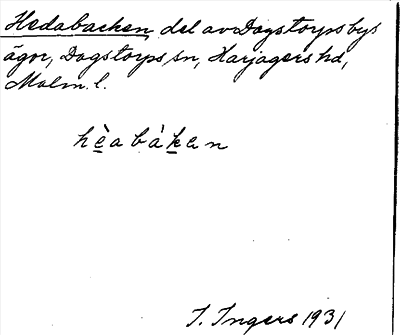 Hedabacken, del av Dagstorps bys
ägor, Dagstorps sn, Harjagers hd,
Malm. l.
hèabàken
I. Ingers 1931